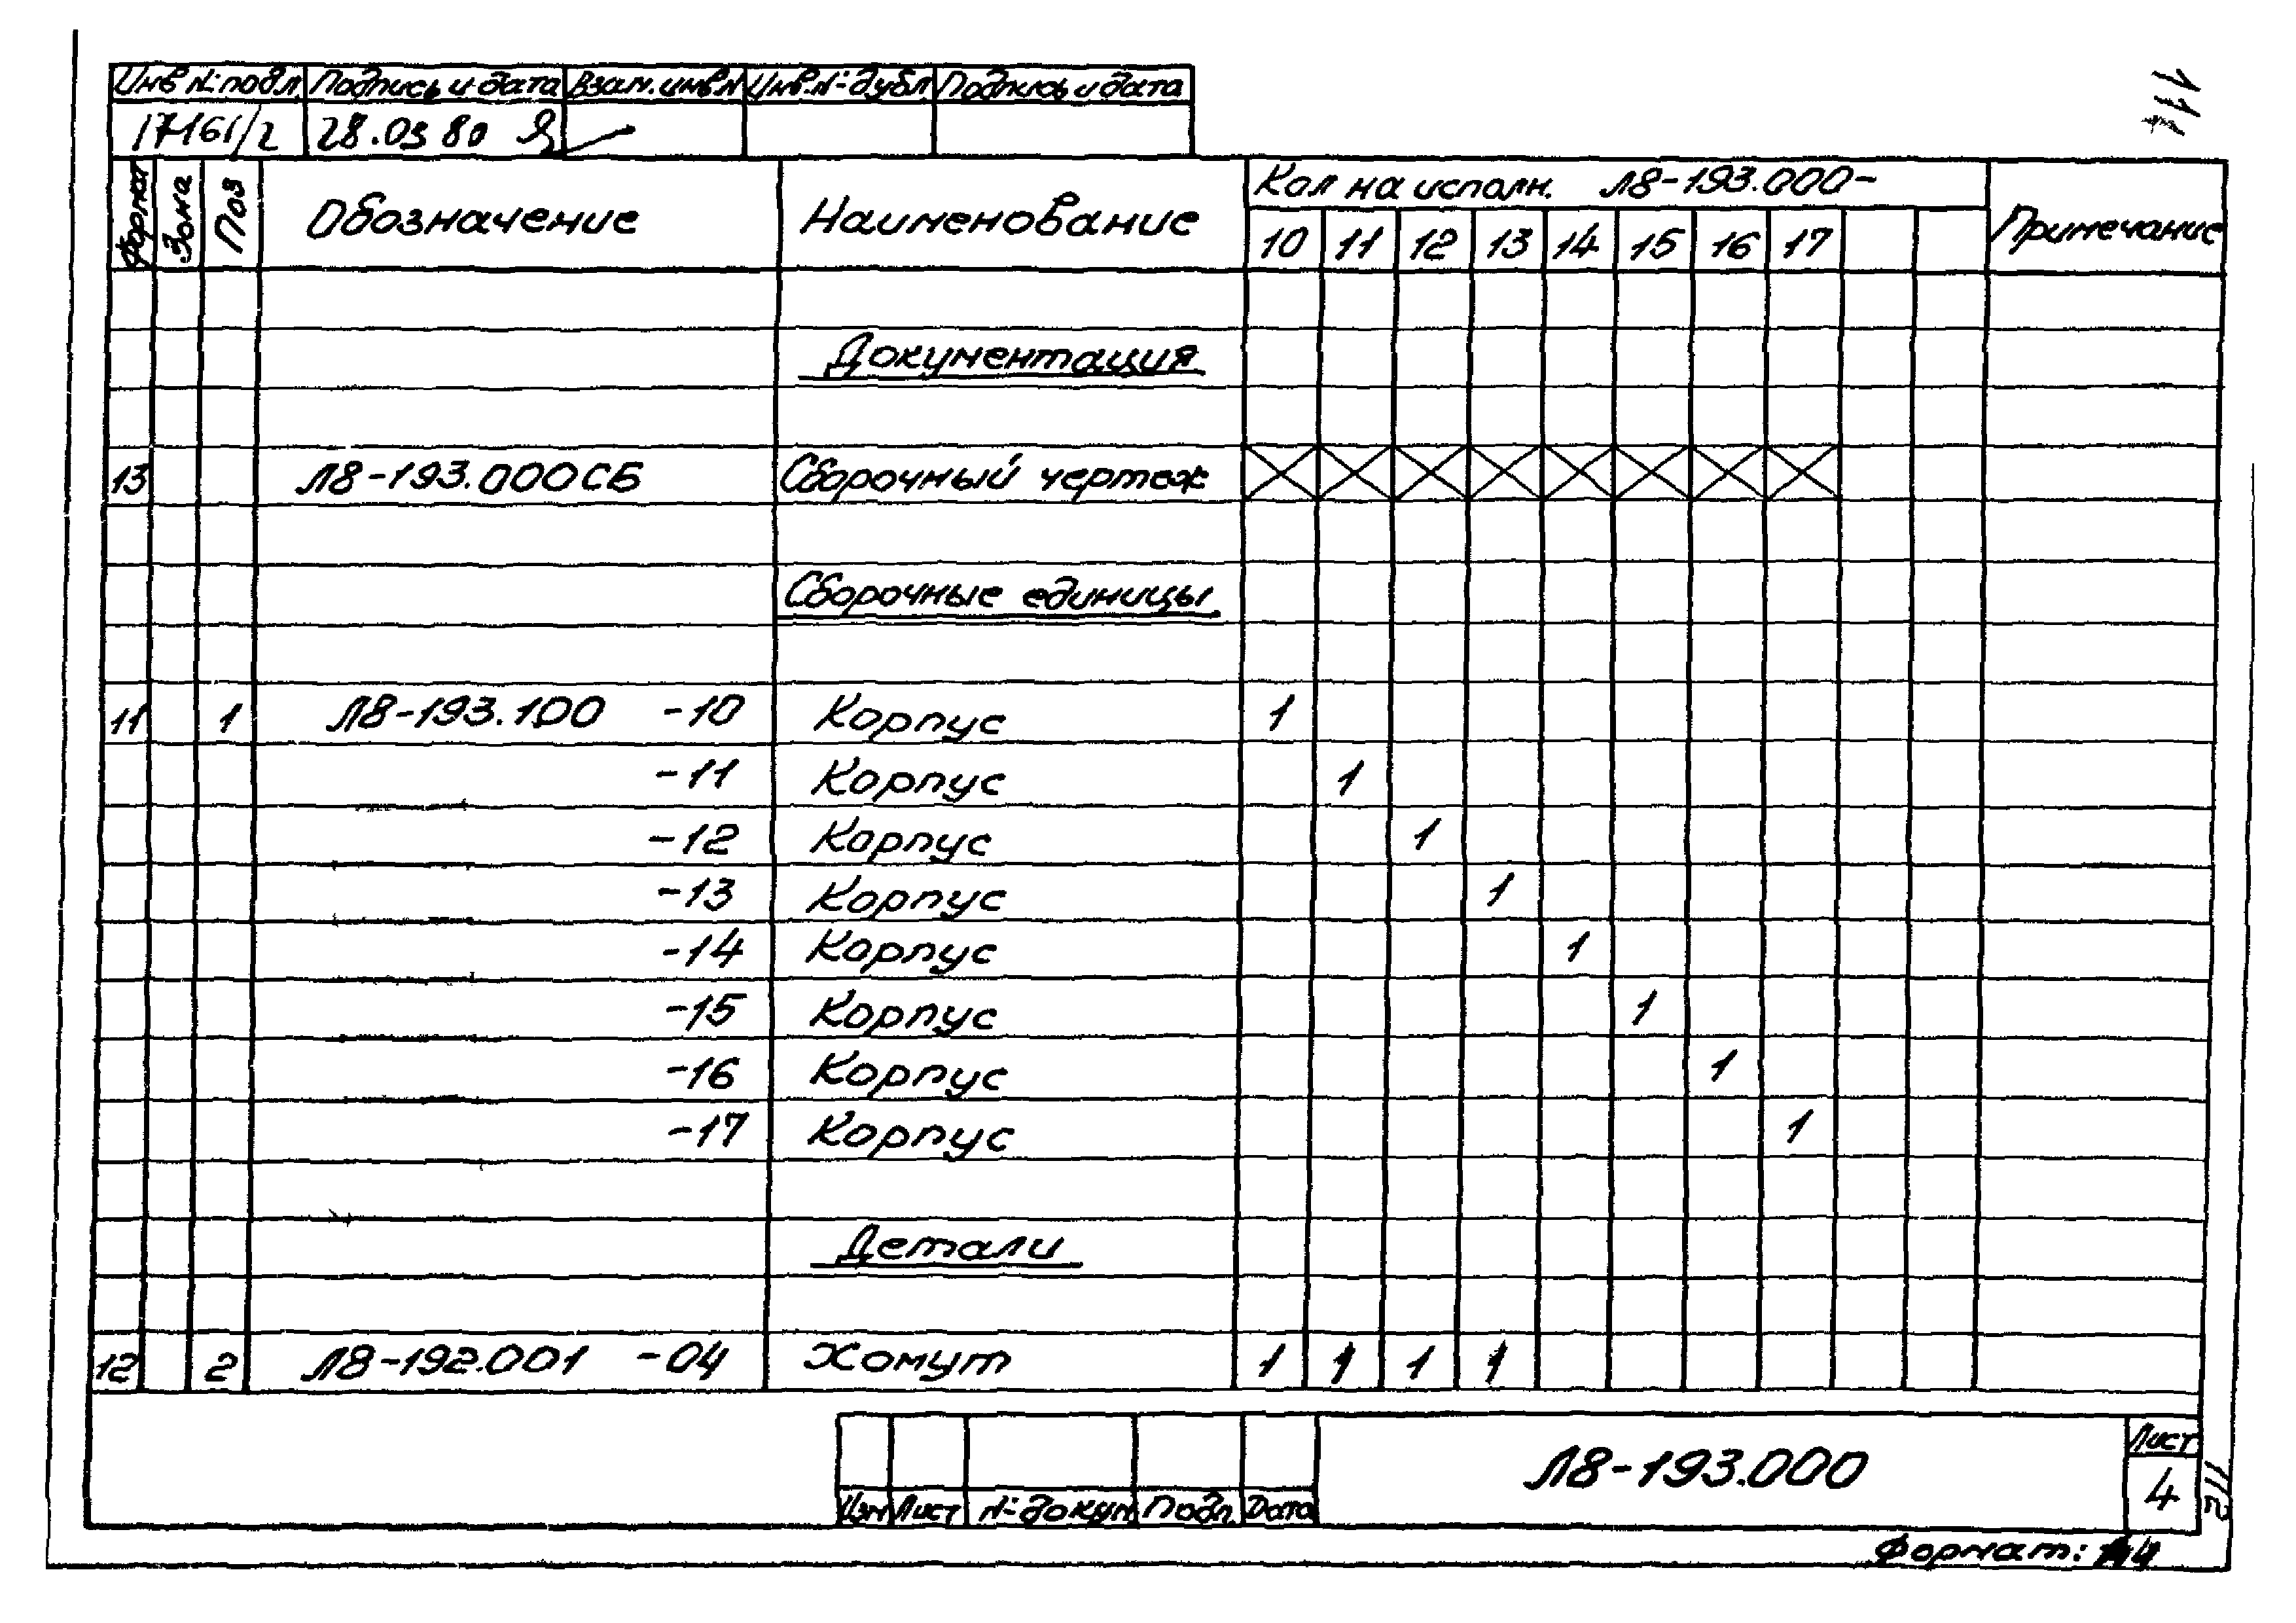 Инв № подл Подпись и дата Взам. инв № Инв. № дубл Подпись и дата
17161/2 28.03 80
111
Формат Зона Поз Обозначение Наименование Кол на исполн. Л8-193.000- Примечание
10 11 12 13 14 15 16 17
Документация
13 Л8-193.000СБ Сборочный чертеж
Сборочные единицы
11 1 Л8-193.100 -10 Корпус 1
-11 Корпус 1
-12 Корпус 1
-13 Корпус 1
-14 Корпус 1
-15 Корпус 1
-16 Корпус 1
-17 Корпус 1
Детали
12 2 Л8-192.001 -04 Хомут 1 1 1 1
Изм Лист № докум Подп. Дата Л8-193.000 Лист
4
112
Формат: